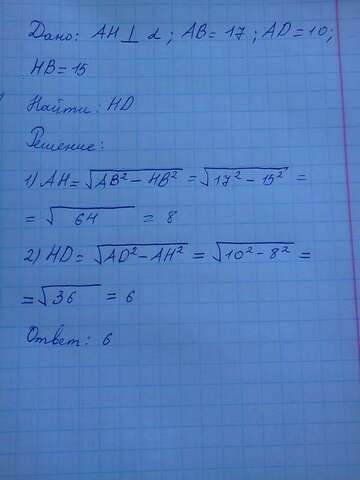 Дано: AH ⊥ α; AB = 17; AD = 10;
HB = 15
Найти: HD
Решение:
1) AH = √AB² − HB² = √17² − 15² =
= √64 = 8
2) HD = √AD² − AH² = √10² − 8² =
= √36 = 6
Ответ: 6